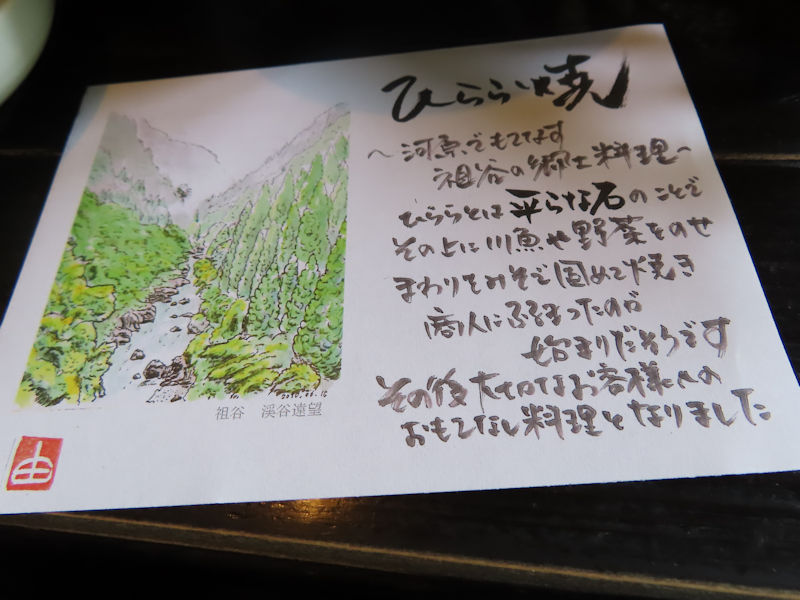 ひらら焼
～河原でもてなす
祖谷の郷土料理～
ひららとは平らな石のことで
その上に川魚や野菜をのせ
まわりをみそで固めて焼き
商人にふるまったのが
始まりだそうです
その後大切なお客様への
おもてなし料理となりました
2010.06.16
祖谷 渓谷遠望
由